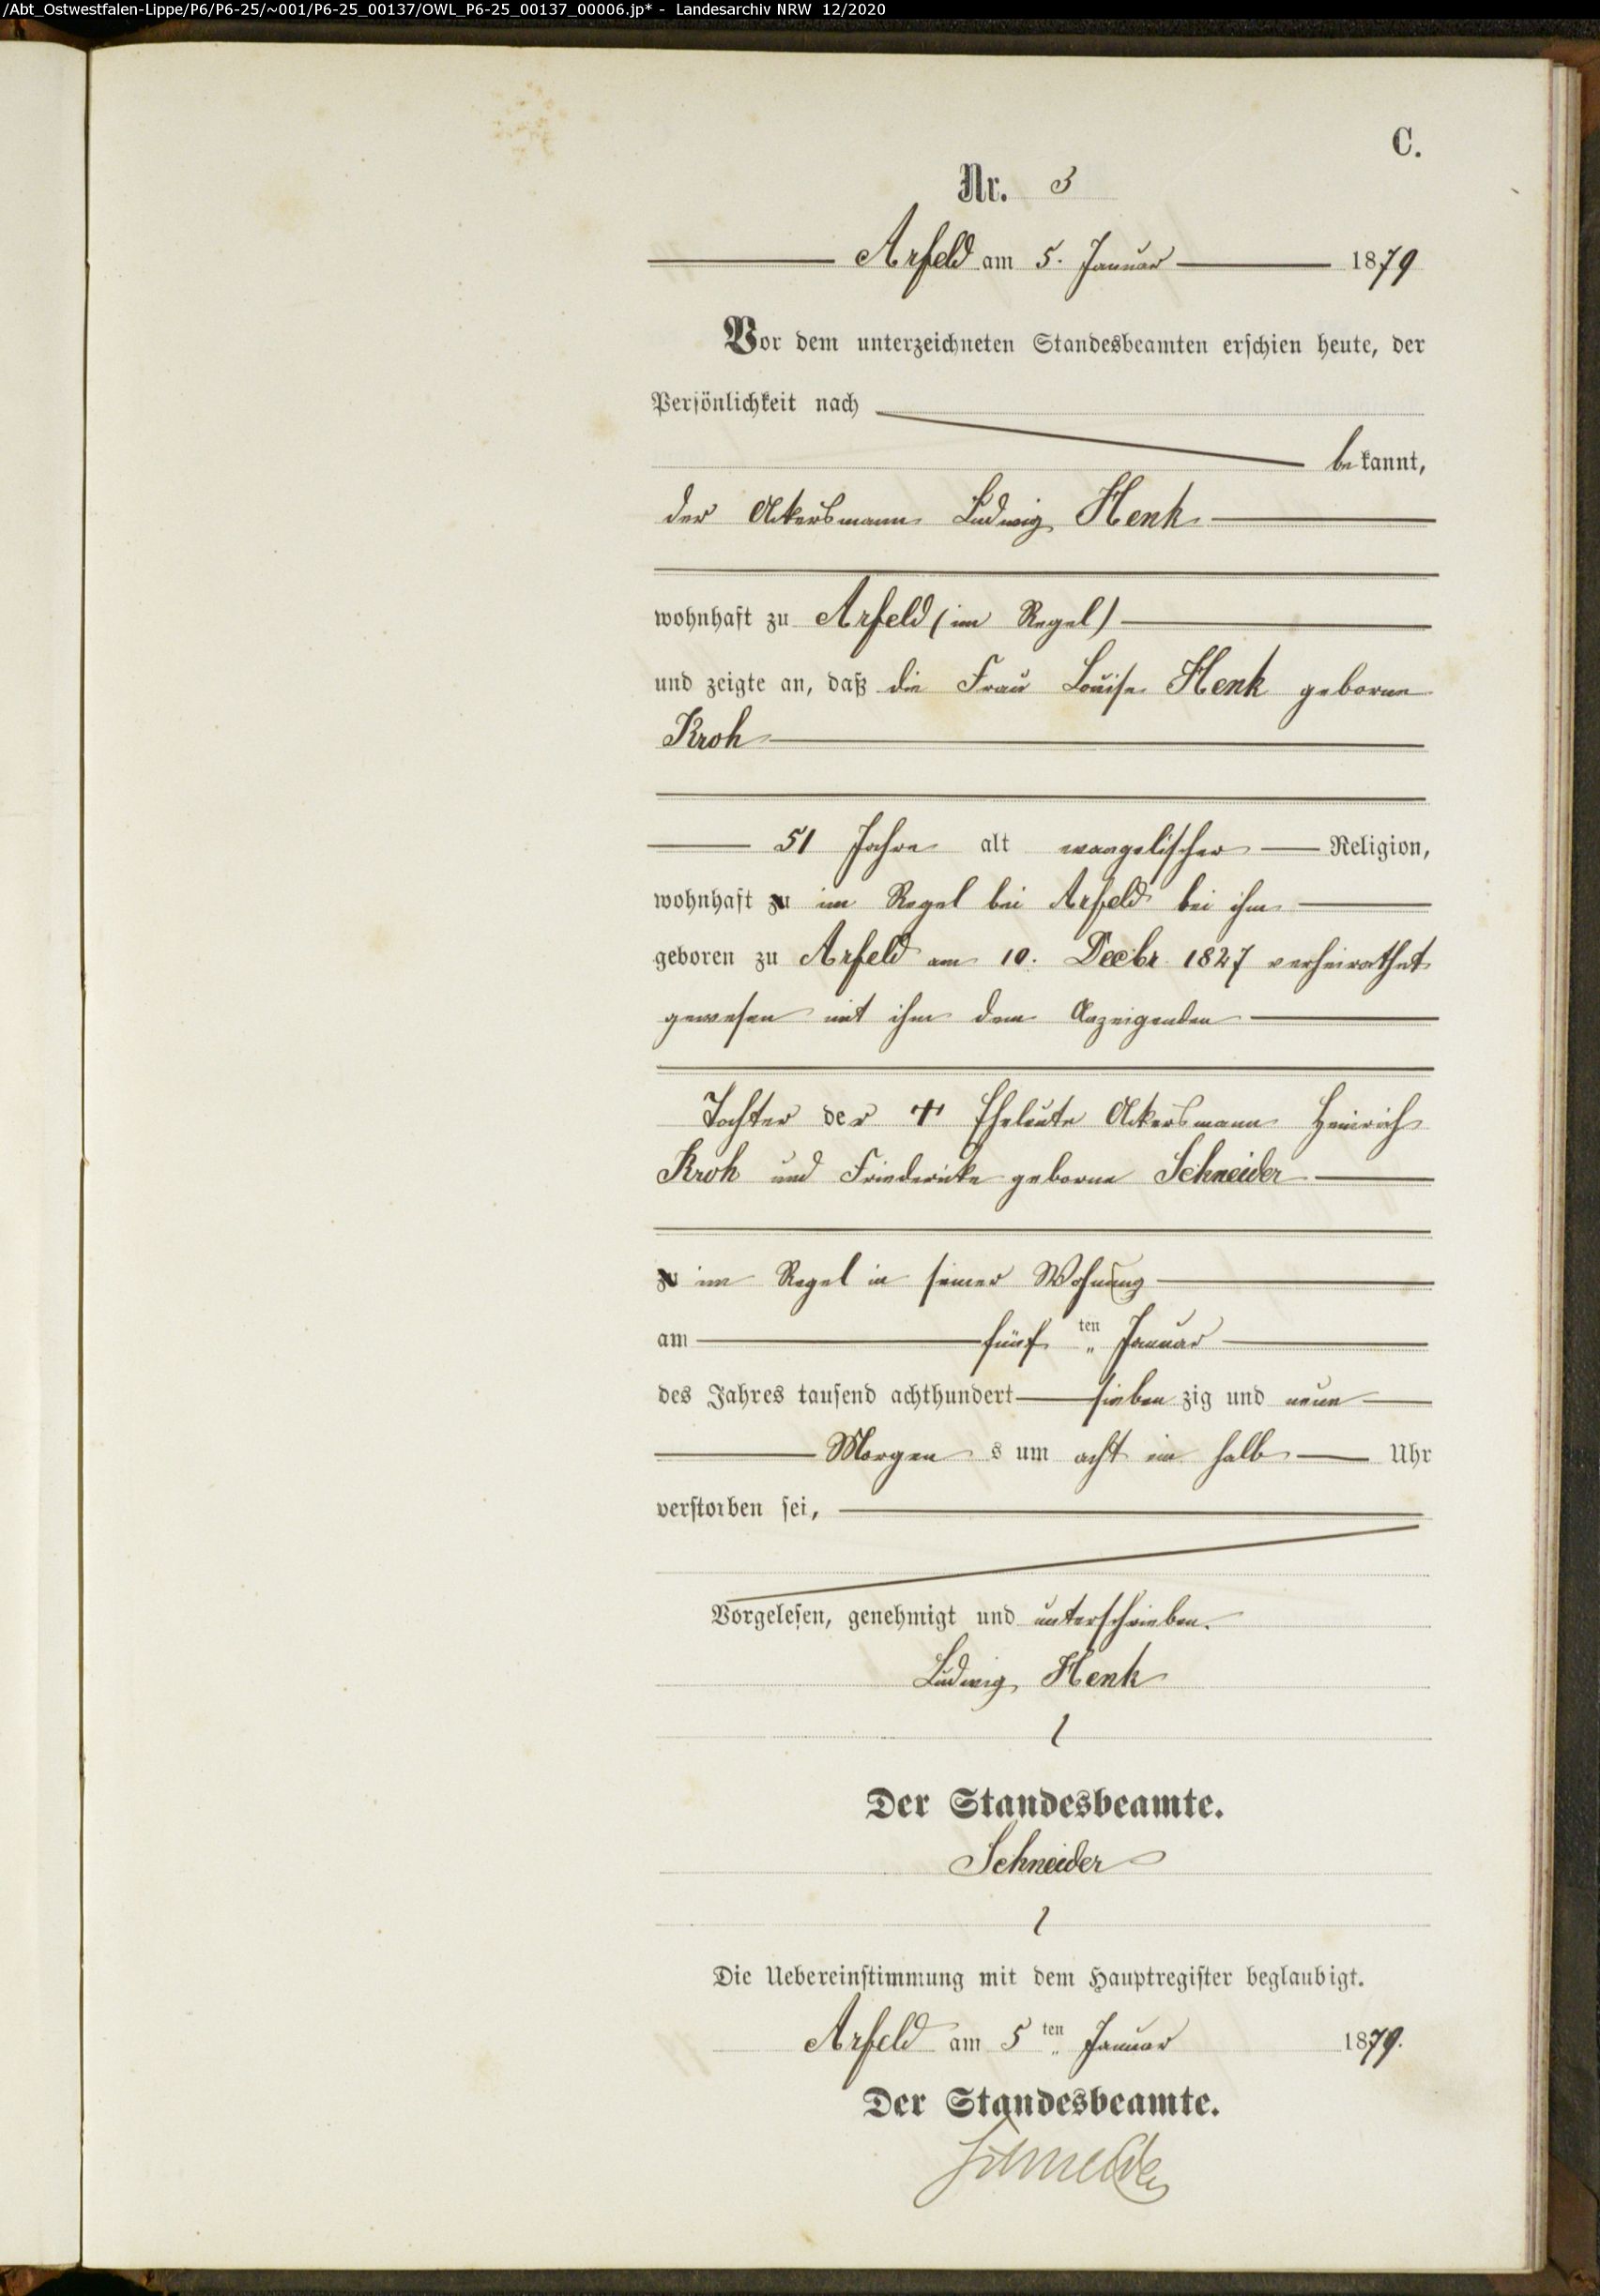 /Abt_Ostwestfalen-Lippe/P6/P6-25/~001/P6-25_00137/OWL_P6-25_00137_00006.jp* - Landesarchiv NRW 12/2020
C.
Nr. 3
Arfeld am 5. Januar 1879
Vor dem unterzeichneten Standesbeamten erschien heute, der
Persönlichkeit nach
bekannt,
der Ackersmann Ludwig Henk
wohnhaft zu Arfeld (im Regel)
und zeigte an, daß die Frau Louise Henk geborne
Kroh
51 Jahre alt evangelischer Religion,
wohnhaft zu im Regel bei Arfeld bei ihm
geboren zu Arfeld am 10. Decbr 1827 verheirathet
gewesen mit ihm dem Anzeigenden
Tochter der † Eheleute Ackersmann Heinrich
Kroh und Friedericke geborne Schneider
zu im Regel in seiner Wohnung
am fünf ten Januar
des Jahres tausend achthundert siebenzig und neun
Morgens um acht ein halb Uhr
verstorben sei,
Vorgelesen, genehmigt und unterschrieben.
Ludwig Henk
Der Standesbeamte.
Schneider
Die Uebereinstimmung mit dem Hauptregister beglaubigt.
Arfeld am 5 ten Januar 1879.
Der Standesbeamte.
Schneider